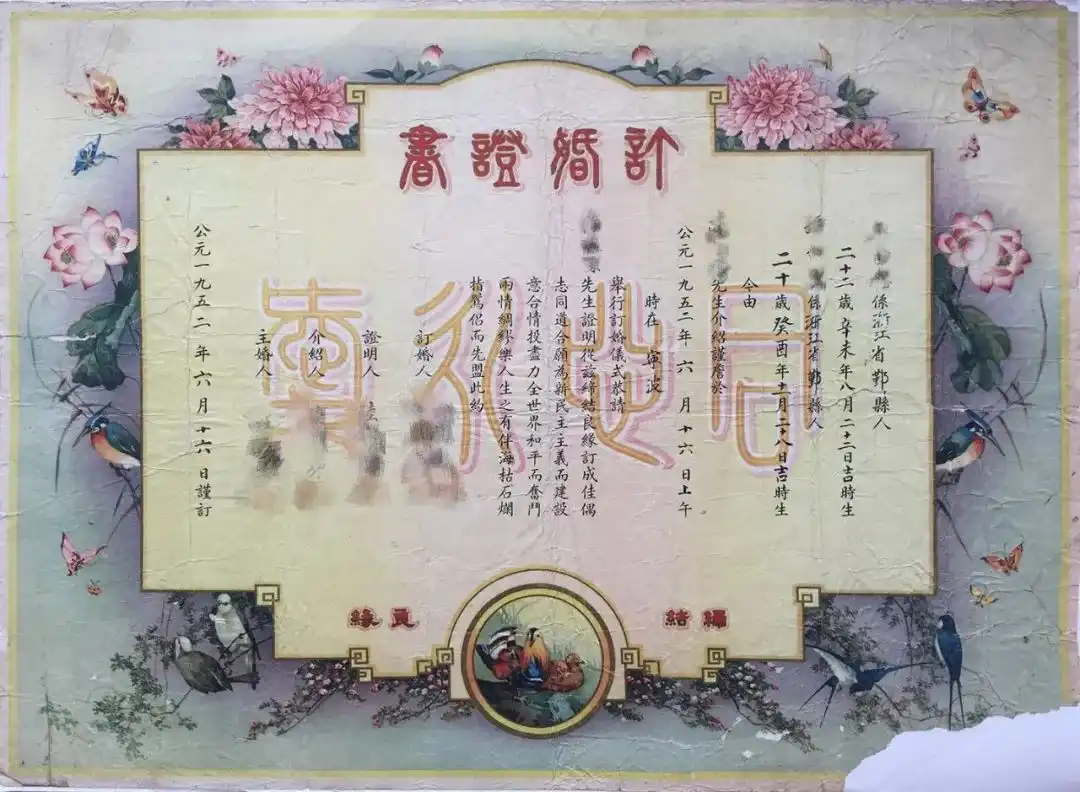 訂婚證書
係浙江省鄞縣人
二十二歲辛未年八月二十二日吉時生
係浙江省鄞縣人
二十歲癸酉年十一月二八日吉時生
今由
先生介紹謹詹於
公元一九五二年六月十六日上午
時在寧波
舉行訂婚儀式恭請
先生證明從茲締結良緣訂成佳偶
志同道合願為新民主主義而建設
意合情投盡力全世界和平而奮鬥
兩情綢紗樂人生之有伴海枯石爛
指鴛侶而先盟此約
訂婚人
證明人
介紹人
主婚人
公元一九五二年六月十六日謹訂
締結
良緣